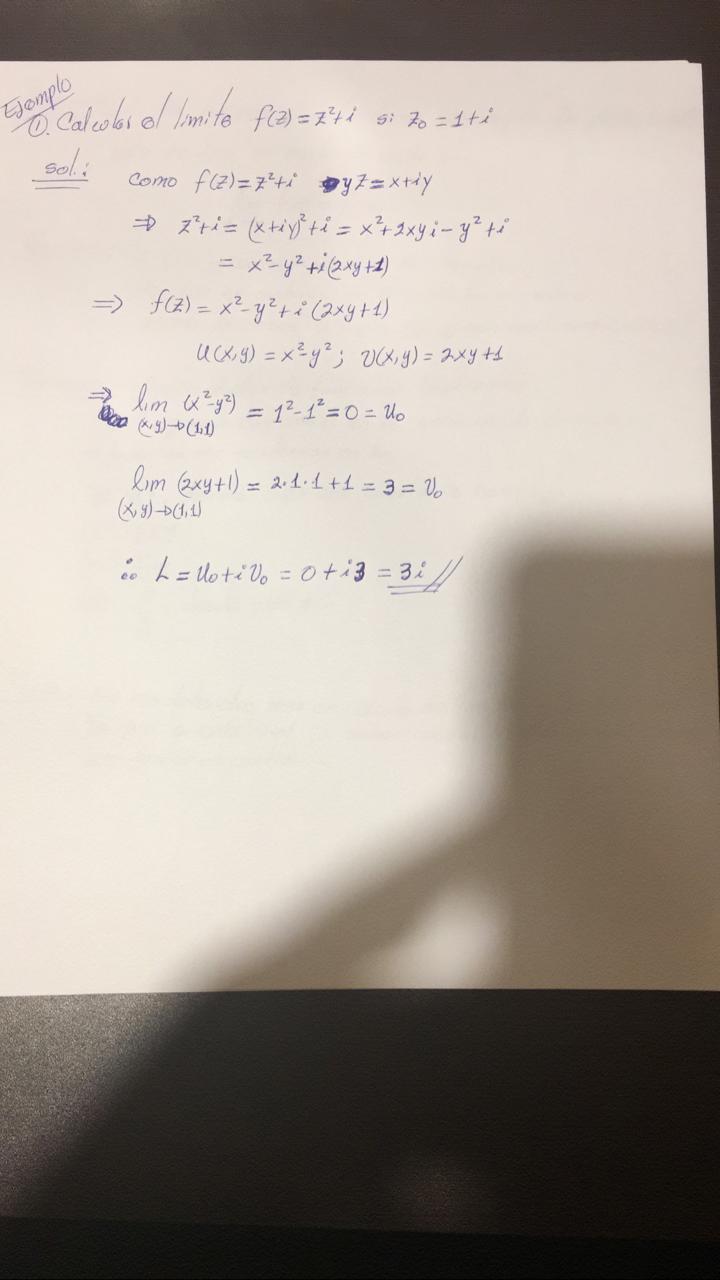 Ejemplo
①. Calcular el limite f(z) = z²+i si z₀ = 1+i
Sol:
Como f(z) = z²+i y z = x+iy
⇒ z²+i = (x+iy)²+i = x²+2xyi-y²+i
= x²-y²+i(2xy+1)
⇒ f(z) = x²-y²+i(2xy+1)
u(x,y) = x²-y² ; v(x,y) = 2xy+1
⇒ lim (x²-y²) = 1²-1² = 0 = u₀
(x,y)→(1,1)
lim (2xy+1) = 2·1·1+1 = 3 = v₀
(x,y)→(1,1)
∴ L = u₀+iv₀ = 0+i3 = 3i //